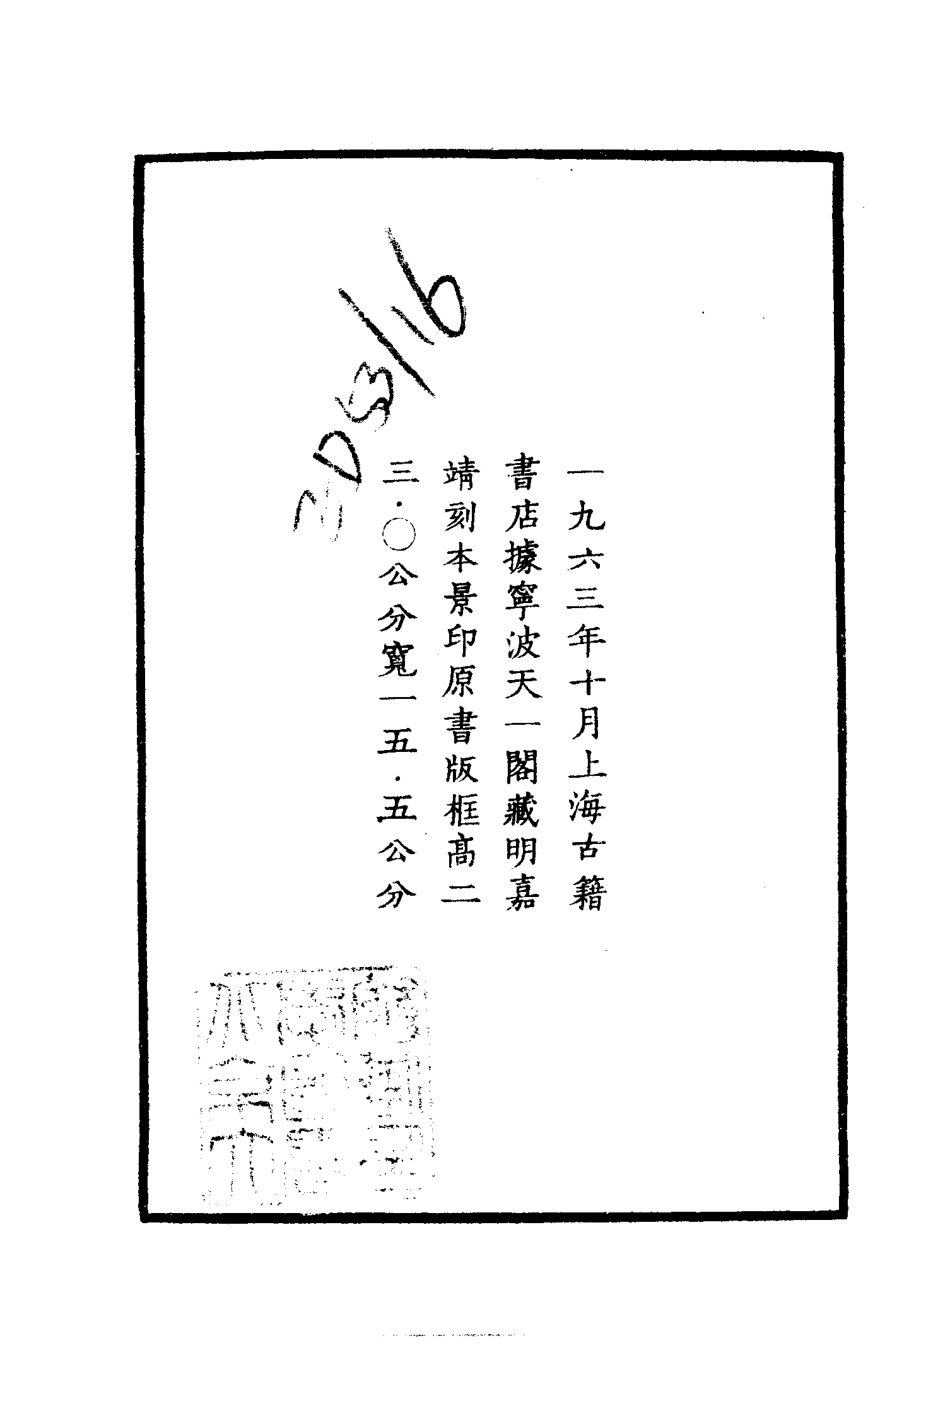 一九六三年十月上海古籍
書店據寧波天一閣藏明嘉
靖刻本景印原書版框高二
三·〇公分寬一五·五公分